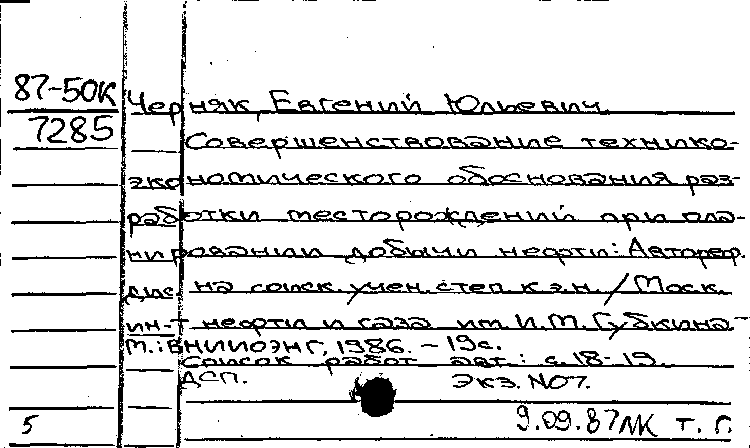 87-50К
Черняк, Евгений Юльевич.
7285
Совершенствование технико-
экономического обоснования раз-
работки месторождений при пла-
нировании добычи нефти: Автореф.
дис. на соиск. учен. степ. к.э.н. / Моск.
ин-т нефти и газа им. И.М. Губкина –
М.: ВНИИОЭНГ, 1986. – 19с.
Список работ авт.: с. 18-19.
ДСП. Экз. №07.
5 9.09.87 МК т. г.